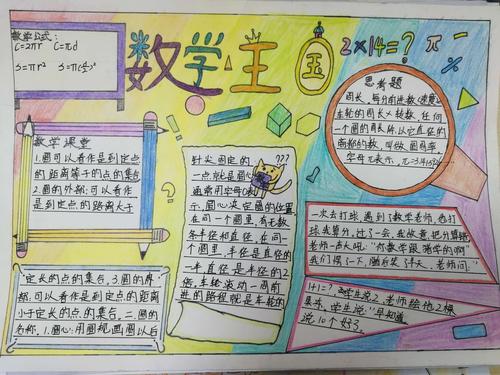 数学公式:
C=2πr C=πd
S=πr² S=π(d/2)²
数学王国
2×14=? π
数学课堂
1.圆可以看作是到定点
的距离等于的点的集合
2.圆的外部:可以看作
是到定点的距离大于
定长的点的集合.3.圆的
部:可以看作是到定点的距离
小于定长的点的集合.二.圆的
名称.1.圆心:用圆规画圆以后
针尖固定的
一点就是圆心
通常用字母
示.圆心决定圆的位置.
在同一个圆里,有无数
条半径和直径,在同一
个圆里,半径是直径的
一半.直径是半径的2
倍.车轮滚动一周前
进的路程就是车轮的
???
?
思考题
周长.每分前进数(速度)=
车轮的周长×转数.任何
一个圆的周长除以它直径的
商都的数,叫做圆周率,
字母π表示.
一次去打球,遇到了数学老师,他打
球我算分,过了一会,我故意把分算错
老师一点火吼:"你数学跟谁学的啊"
我们愣了一下,随后笑
1+1=? 学生说2.老师给他2棵
果糖.学生说:"早知道
说10个好了.